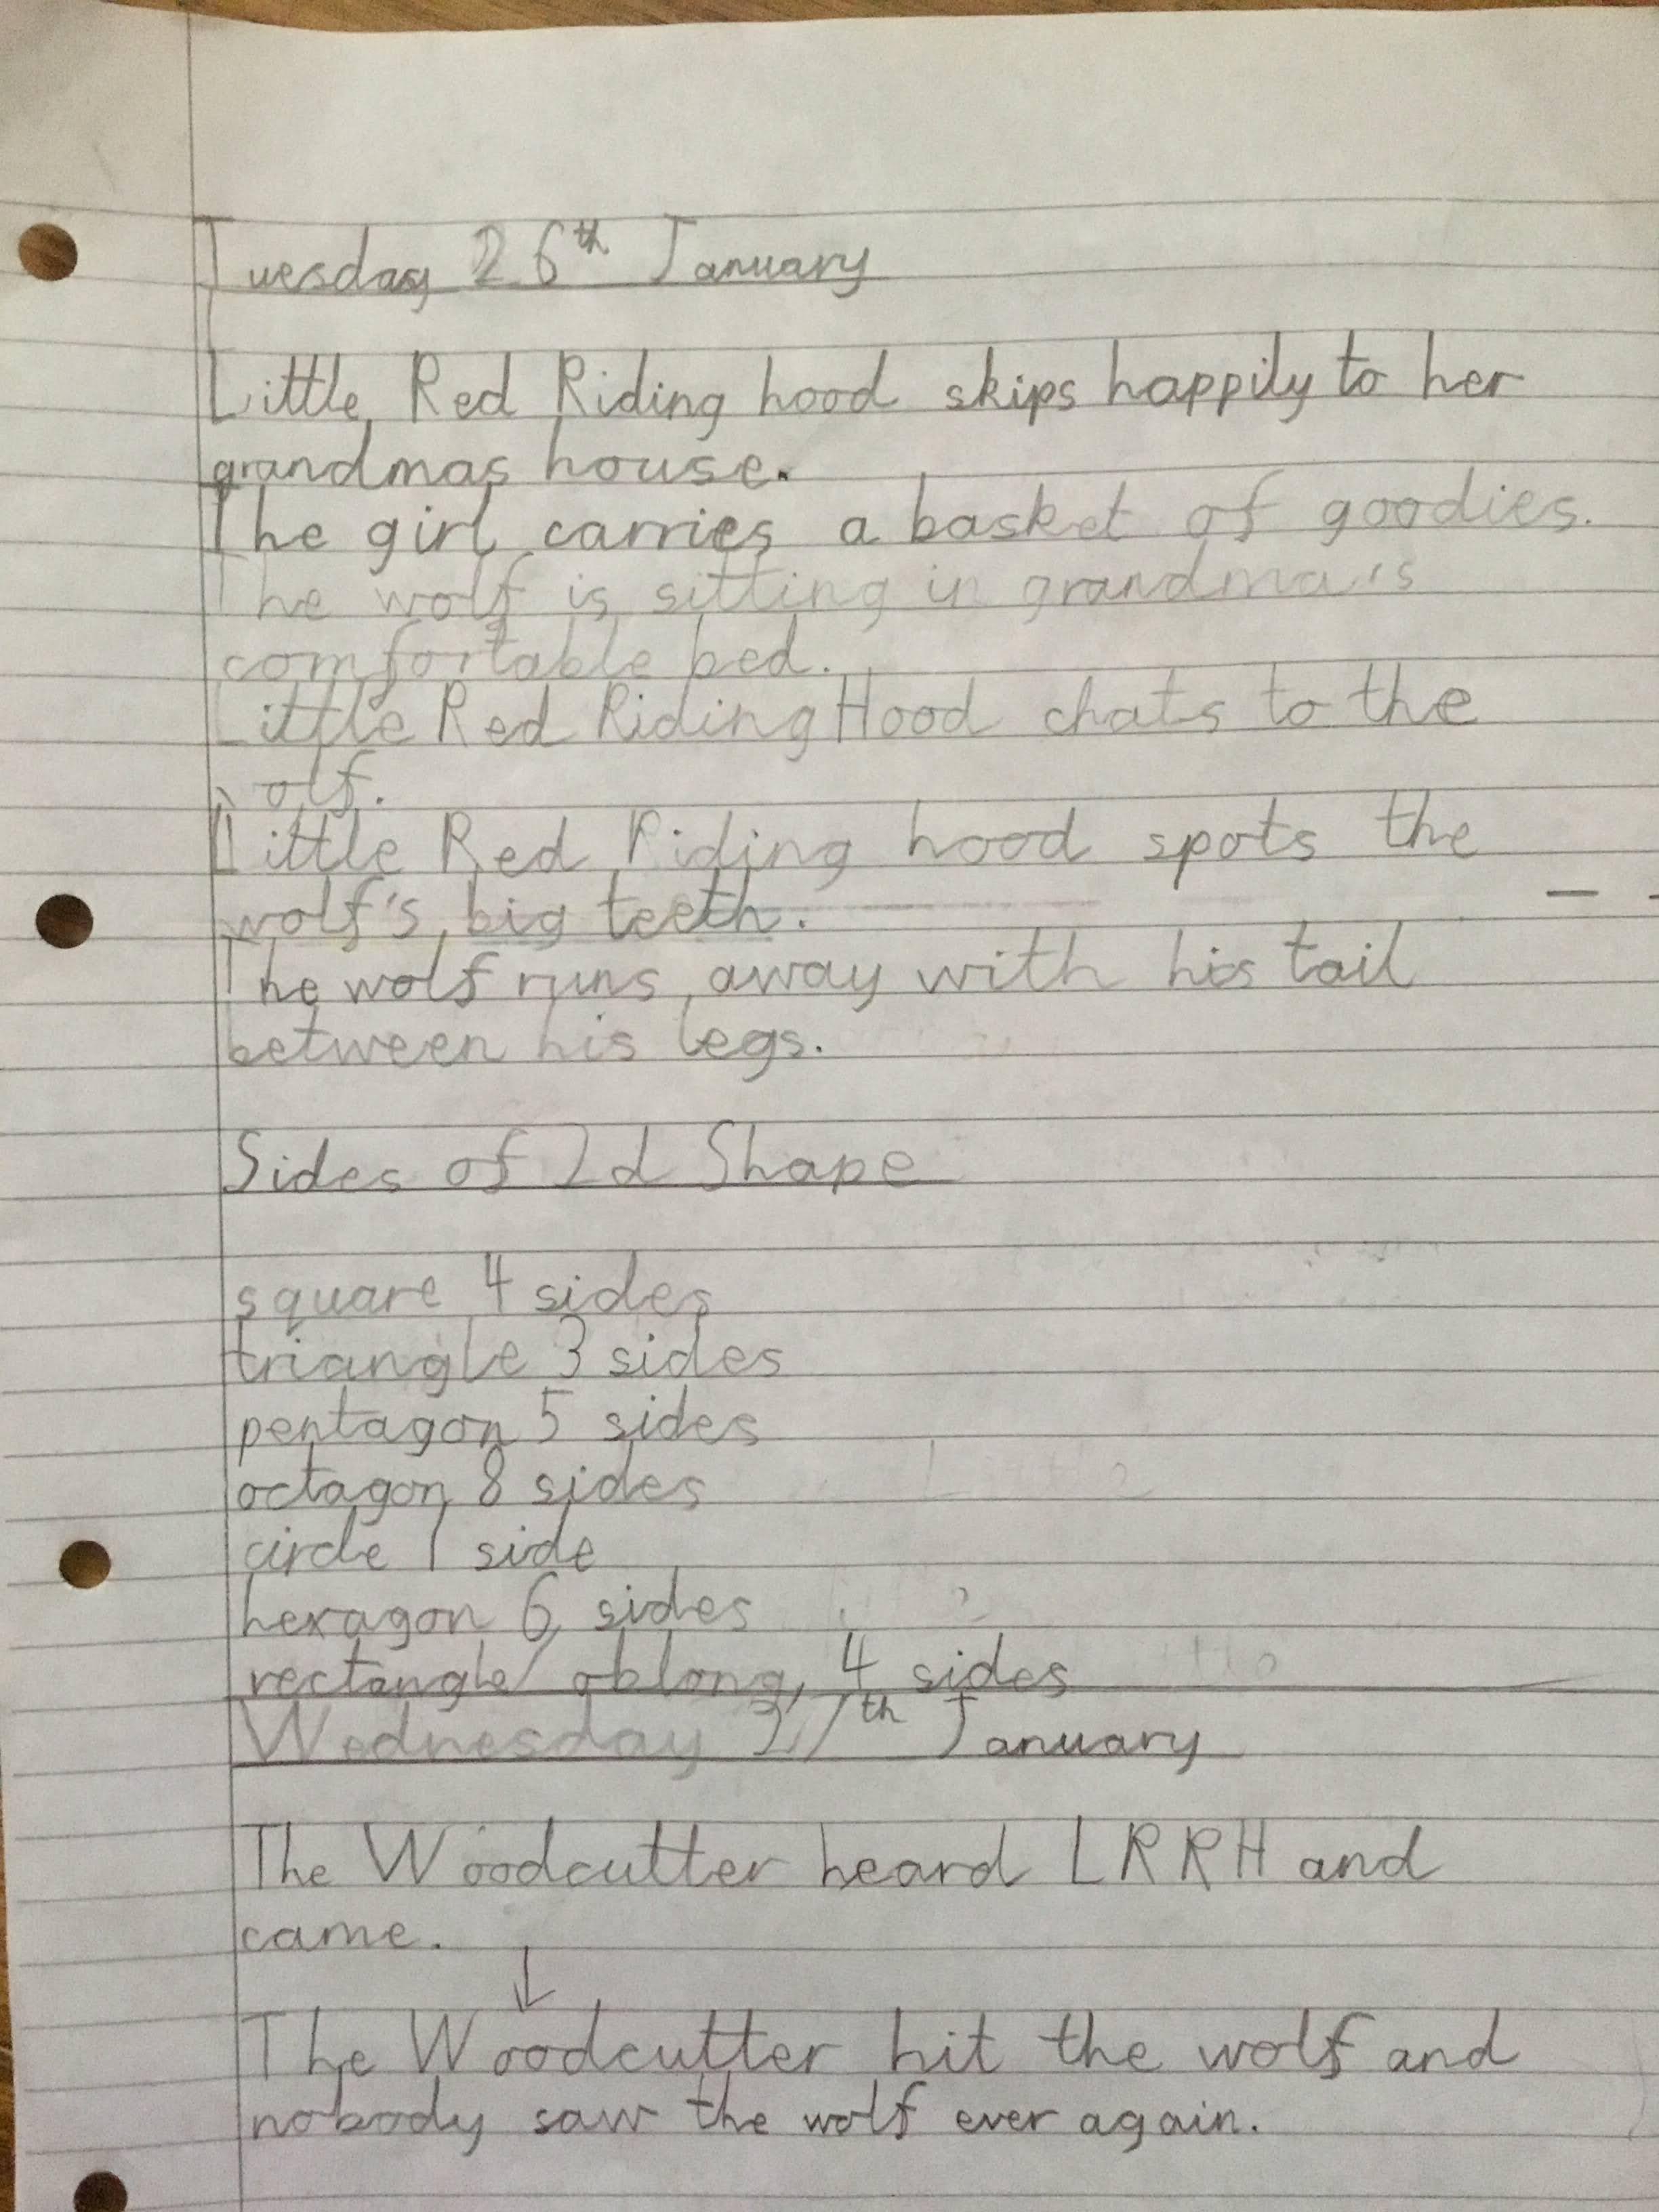 Tuesday 26th January
Little Red Riding hood skips happily to her
grandmas house.
The girl carries a basket of goodies.
The wolf is sitting in grandma's
comfortable bed.
Little Red Riding Hood chats to the
olf.
Little Red Riding hood spots the
wolf's big teeth.
The wolf runs away with his tail
between his legs.
Sides of 2d Shape
square 4 sides
triangle 3 sides
pentagon 5 sides
octagon 8 sides
circle 1 side
hexagon 6 sides
rectangle/oblong, 4 sides
Wednesday 27th January
The Woodcutter heard LRRH and
came.
↓
The Woodcutter hit the wolf and
nobody saw the wolf ever again.